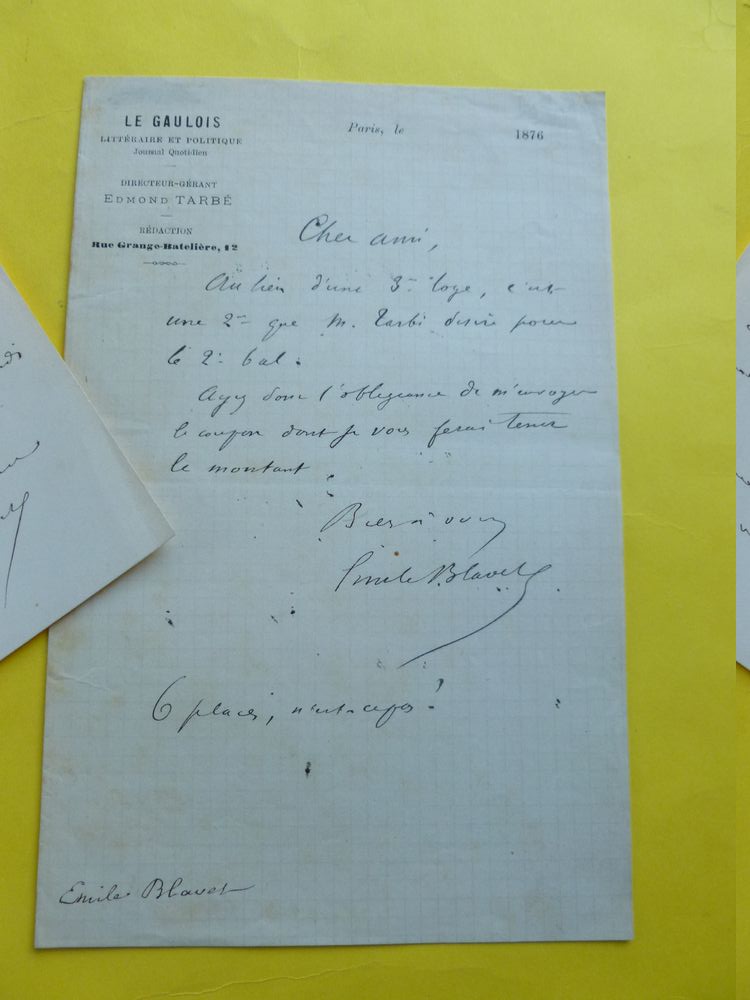 LE GAULOIS
LITTÉRAIRE ET POLITIQUE
Journal Quotidien
DIRECTEUR-GÉRANT
EDMOND TARBÉ
RÉDACTION
Rue Grange-Batelière, 12
Paris, le 1876
Cher ami,
Au lieu d'une 3me loge, c'est
une 2me que M. Tarbé désire pour
le 2e bal.
Ayez donc l'obligeance de m'envoyer
le coupon dont je vous ferai tenir
le montant
Bien à vous
Emile Blavet
6 places, n'est-ce pas?
Emile Blavet